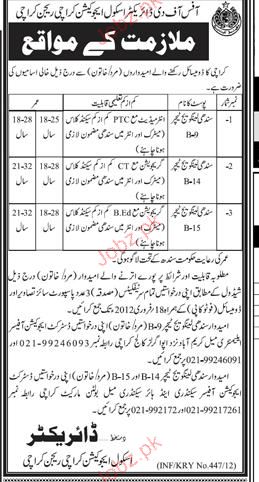 آفس آف دی ڈائریکٹر اسکول ایجوکیشن کراچی ریجن کراچی
ملازمت کے مواقع
کراچی کا ڈومیسائل رکھنے والے امیدواروں (مرد/خاتون) سے درج ذیل خالی اسامیوں کی
ضرورت ہے۔
نمبر شمار پوسٹ کا نام کم از کم تعلیمی قابلیت عمر
-1 سندھی لینگویج ٹیچر B-9 انٹرمیڈیٹ مع PTC کم از کم سیکنڈ کلاس (میٹرک اور انٹر میں سندھی مضمون لازمی ہونا چاہئے) 18-25 سال 18-28 سال
-2 سندھی لینگویج ٹیچر B-14 گریجویشن مع CT کم از کم سیکنڈ کلاس (میٹرک اور انٹر میں سندھی مضمون لازمی ہونا چاہئے) 18-28 سال 21-32 سال
-3 سندھی لینگویج ٹیچر B-15 گریجویشن مع B.Ed کم از کم سیکنڈ کلاس (میٹرک اور انٹر میں سندھی مضمون لازمی ہونا چاہئے) 18-28 سال 21-32 سال
عمر کی رعایت حکومت سندھ کے تحت لاگو ہوگی۔
مطلوبہ قابلیت اور شرائط پر پورے اترنے والے امیدوار (مرد/خاتون) درج ذیل
شیڈول کے مطابق اپنی درخواستیں تمام سرٹیفکیٹس (مصدقہ) 3 عدد پاسپورٹ سائز تصاویر اور
ڈومیسائل (فوٹو کاپی) کے ہمراہ 18 فروری 2012 تک جمع کرائیں۔
امیدوار سندھی لینگویج ٹیچر B-9 (مرد/خاتون) اپنی درخواستیں ڈسٹرکٹ ایجوکیشن آفیسر
ایلیمنٹری میل کریم آباد نزد اپوا گرلز کالج کراچی رابطہ نمبر 021-99246093 اور
021-99246091 پر جمع کرائیں۔
امیدوار سندھی لینگویج ٹیچر B-14 اور B-15 (مرد/خاتون) اپنی درخواستیں ڈسٹرکٹ
ایجوکیشن آفیسر سیکنڈری اینڈ ہائر سیکنڈری میل بولٹن مارکیٹ کراچی رابطہ نمبر
021-99217261 اور 021-992172 پر جمع کرائیں۔
ڈائریکٹر
اسکول ایجوکیشن کراچی ریجن کراچی
(INF/KRY No.447/12)
Jobz.pk